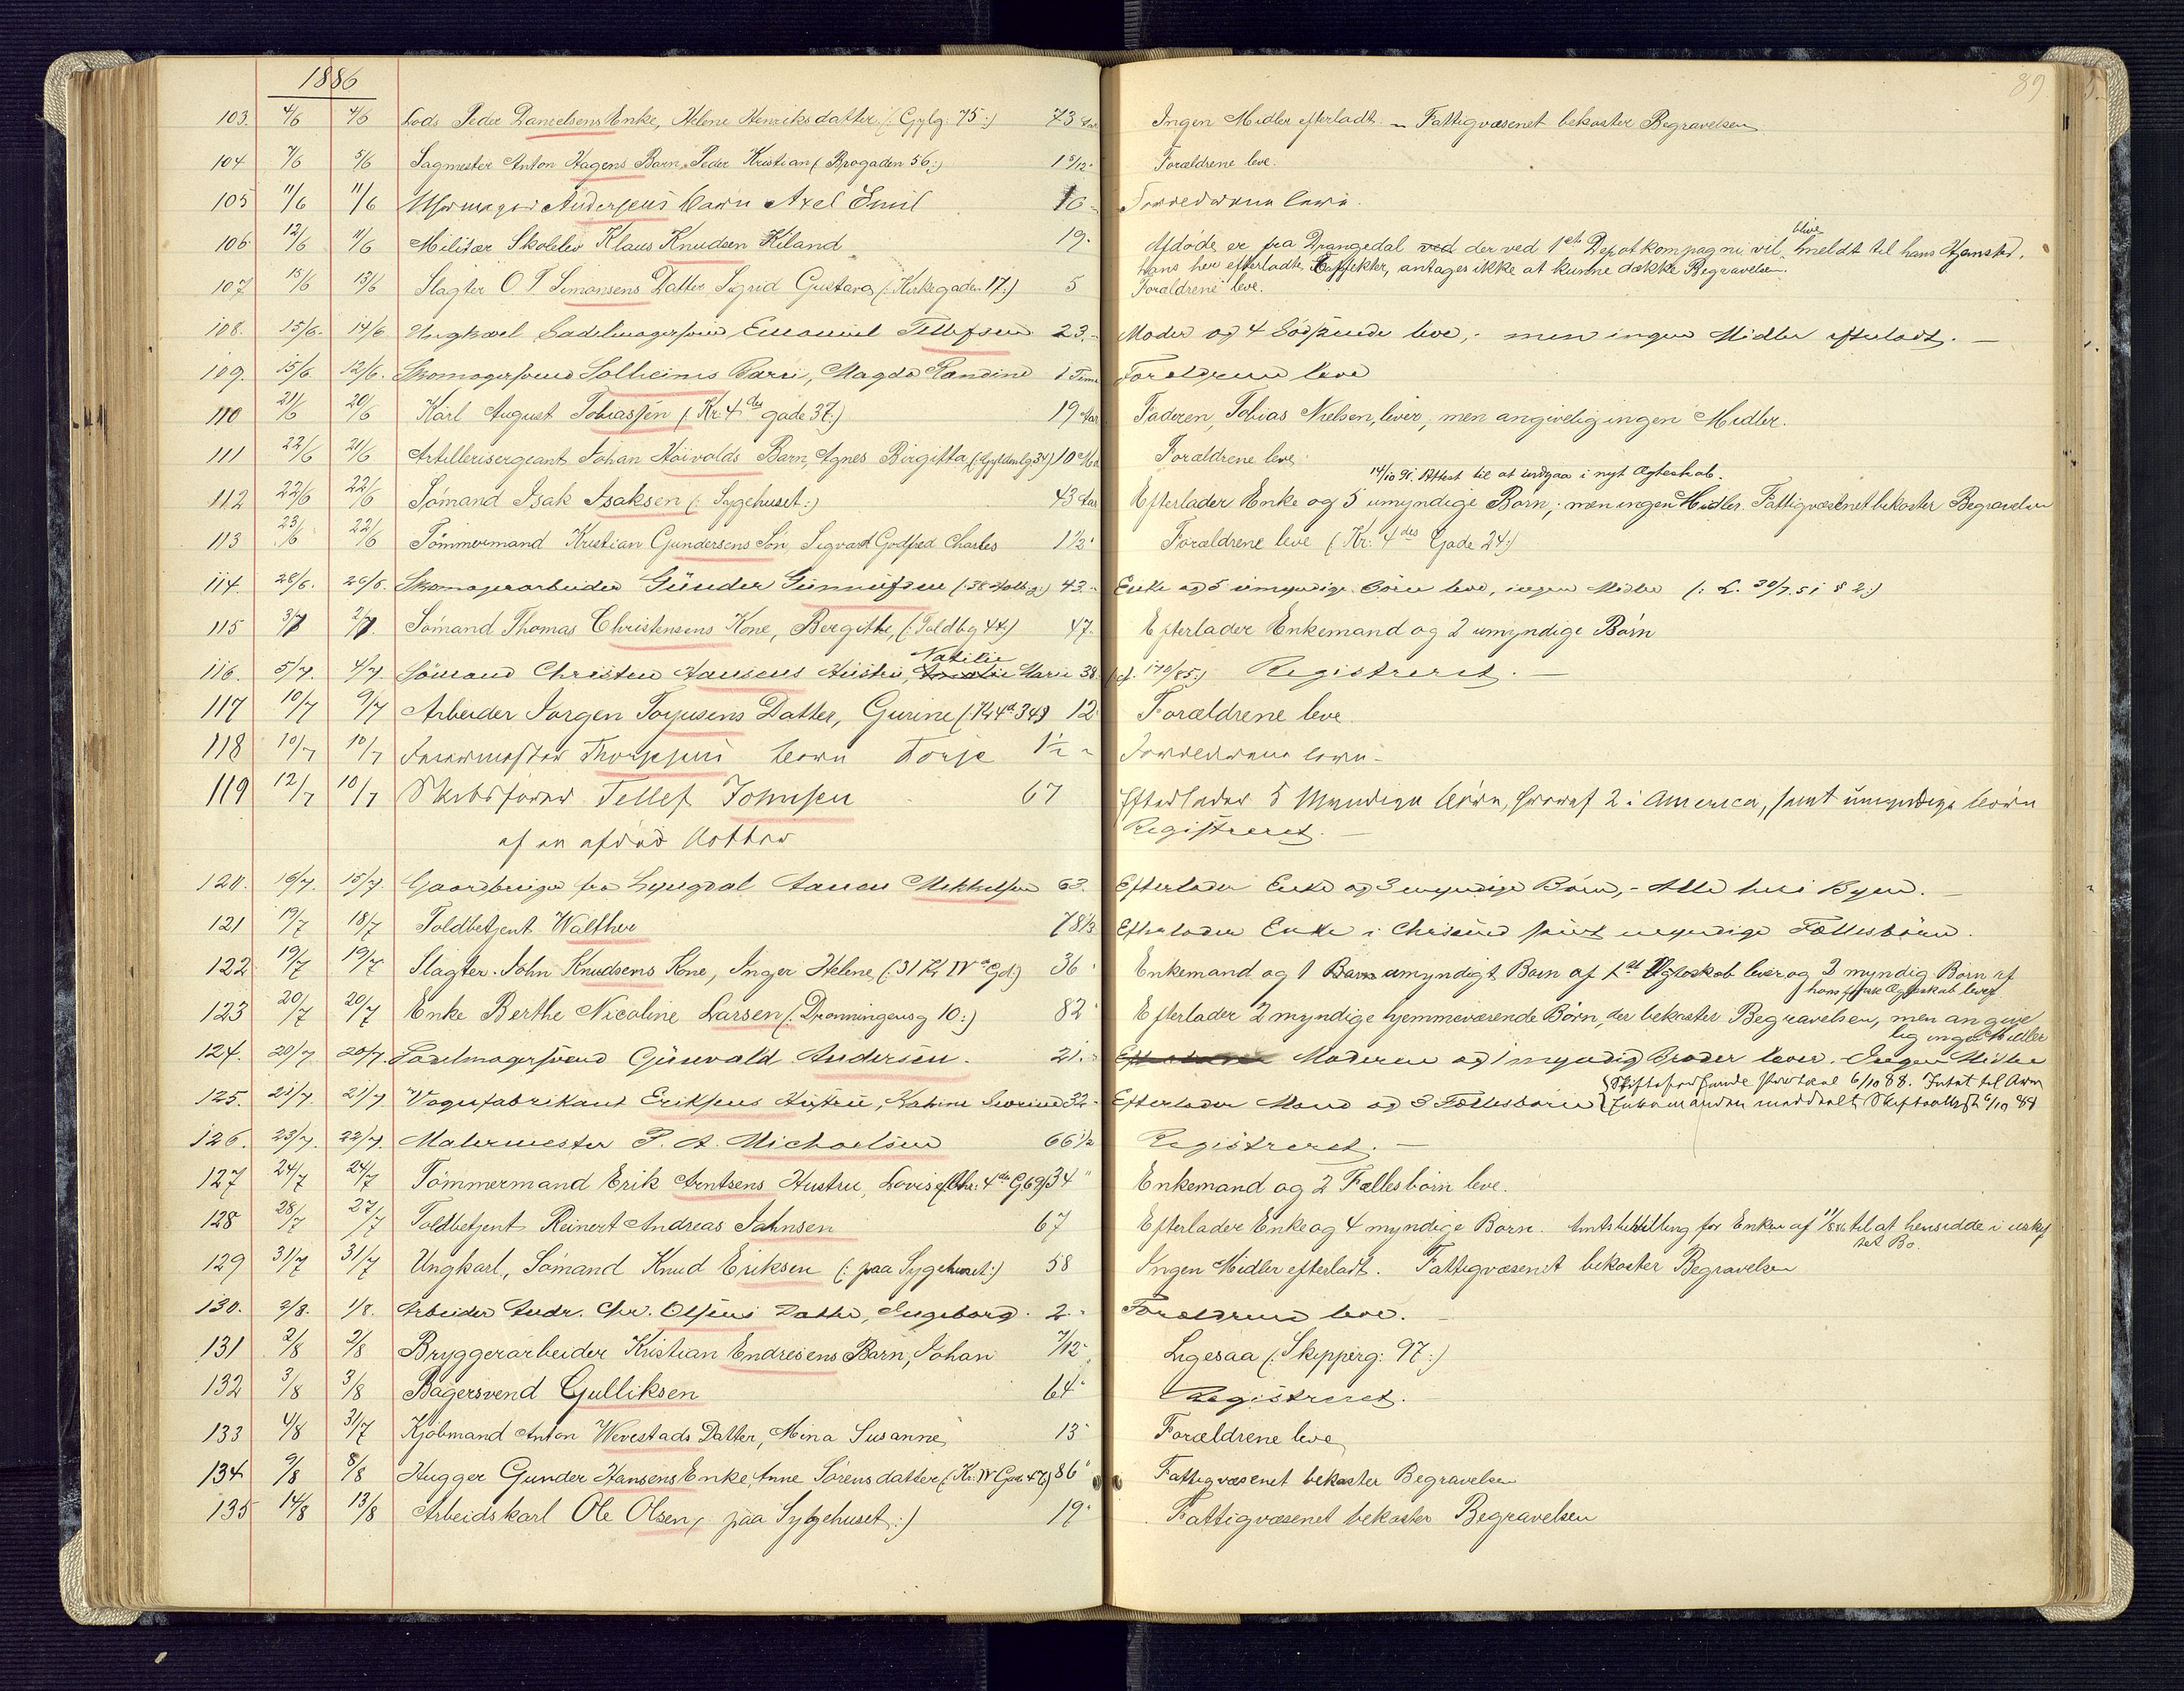 1886
89
103. 4/6 4/6 Lods Peder Danielsens Enke, Helene Henriksdatter (: Gylg. 75 :) 73 Aar Ingen Midler efterladt. - Fattigvæsenet bekoster Begravelsen
104 7/6 5/6 Sagmester Anton Hagens Barn, Peder Kristian (Brogaden 56:) 1 5/12 Forældrene leve.
105 11/6 11/6 Andersens barn Axel Emil Forældrene leve.
106 12/6 11/6 Militær Skoleelev Klaus Knudsen Kiland 19. Afdøde er fra Drangedal ved der ved 1ste Depotkompagni vil blive meldt til hans Hjemsted.
hans her efterladte Effekter, antages ikke at kunne dække Begravelsen.
107 15/6 13/6 Slagter O T Simonsens Datter Sigrid Gustava (: Kirkegaden 17:) 5 Forældrene leve.
108. 15/6. 14/6 Ungkarl Sadelmagersvend Emanuel Tellefsen 23. Moder og 4 Sødskende leve, - men ingen Midler efterladt. -
109. 15/6 12/6. Skomagersvend Solheims Barn, Magda Randine 1 Time Forældrene leve
110 21/6 20/6 Karl August Tobiassen (: Kr. 4des gade 37:) 19 Aar Faderen, Tobias Nielsen, lever, men angivelig ingen Midler.
111 22/6 21/6 Artillerisergeant Johan Høivolds Barn, Agnes Birgitta (: Gyldenlg 34) 10 Md Forældrene leve.
14/10 91. Attest til at indgaa i nyt Ægteskab.
112 22/6 22/6 Sømand Isak Isaksen (: Sygehuset :) 43 Aar Efterlader Enke og 5 umyndige Børn; men ingen Midler. Fattigvæsenet bekoster Begravelsen
113 23/6 22/6 Tømmermand Kristian Gundersens Søn, Sigvart Godfred Charles 1 1/2 Forældrene leve (: Kr: 4des Gade 24:)
114. 28/6. 26/6. Skomagerarbeider Gunder Gunnufsen (: 38 Holbg:) 43. Enke og 5 umyndige Børn leve, ingen Midler (: L. 30/7 51 § 2:)
115 3/7 2/7. Sømand Thomas Christensens Kone, Bergithe, (: Toldbg 44:) 47. Efterlader Enkemand og 2 umyndige Børn
116. 5/7. 4/7. Sømand Christen Hansens Hustru, Natilie Marie 38. (cf. 170/85:) Registreret. -
117 10/7 9/7 Arbeider Jørgen Torjusens Datter, Gurine (: Kr 4d 34) 12 Forældrene leve.
118 10/7 10/7 Farvermester Thorsens barn Torje 1 1/2 Forældrene leve -
119 12/7 10/7 Skibsfører Tellef Johnsen 67 Efterlader 5 Myndige børn, hvoraf 2 i America, samt umyndige børn
af en afdød datter Registreret. -
120. 16/7. 15/7. Gaardbruger fra Lyngdal Aanen Mikkelsen 63. Efterlader Enke og 3 myndige Børn, - Alle her i Byen. -
121 19/7 18/7 Toldbetjent Walther 78 1/3 Efterlader Enke i Chrsund samt umyndige Fællesbørn.
122 19/7 19/7 Slagter John Knudsens Kone, Inger Helene (: 31 Kr IV Gd:) 36 Enkemand og 1 Barn umyndigt Barn af 1ste Ægteskab lever og 2 myndig Børn af
hans første Ægteskab lever
123 20/7 20/7 Enke Berthe Nicoline Larsen (: Dronningensg 10:) 82 Efterlader 2 myndige hjemmeværende Børn, der bekoster Begravelsen, men angive
lig ingen Midler
124. 20/7. 20/7. Sadelmagersvend Gunvald Andersen. 21. Moderen og 1 myndig Broder lever. Ingen Midler
125. 21/7. 21/7. Vognfabrikant Eriksens Hustru, Katrine Severine 32. Efterlader Mand og 3 Fællesbørn { 6/10 88.
Enkemanden meddelt Skifteattest 6/10 88
126. 23/7. 22/7. Malermester P. A. Michaelsen 66 1/2 Registreret. -
127 24/7 24/7 Tømmermand Erik Arntsens Hustru, Lovise (Chr: 4de G 69) 34 Enkemand og 2 Fællesbørn leve.
128 28/7 27/7 Toldbetjent Reinert Andreas Jahnsen 67 Efterlader Enke og 4 myndige Børn. Amtsbevilling for Enken af til at hensidde i uskif
tet Bo.
129 31/7 31/7 Ungkarl, Sømand Knud Eriksen (: paa Sygehuset:) 58 Ingen Midler efterladt. Fattigvæsenet bekoster Begravelsen
130. 2/8. 1/8. Arbeider Andr. Chr. Olsens Datter, Ingeborg. 2. Forældrene leve. -
131 2/8 2/8 Bryggerarbeider Kristian Endresens Barn, Johan 7/12 Ligesaa (: Skipperg: 97:)
132 3/8 3/8 Bagersvend Gulliksen 64 Registreret. -
133 4/8 31/7 Kjøbmand Anton Wevestads Datter, Mina Susanne 13 Forældrene leve
134 9/8 8/8 Hugger Gunder Hansens Enke, Anne Sørensdatter (: Kr: IV Gade 46) 86 Fattigvæsenet bekoster Begravelsen
135 14/8 13/8 Arbeidskarl Ole Olsen, paa Sygehuset:) 19 Fattigvæsenet bekoster Begravelsen